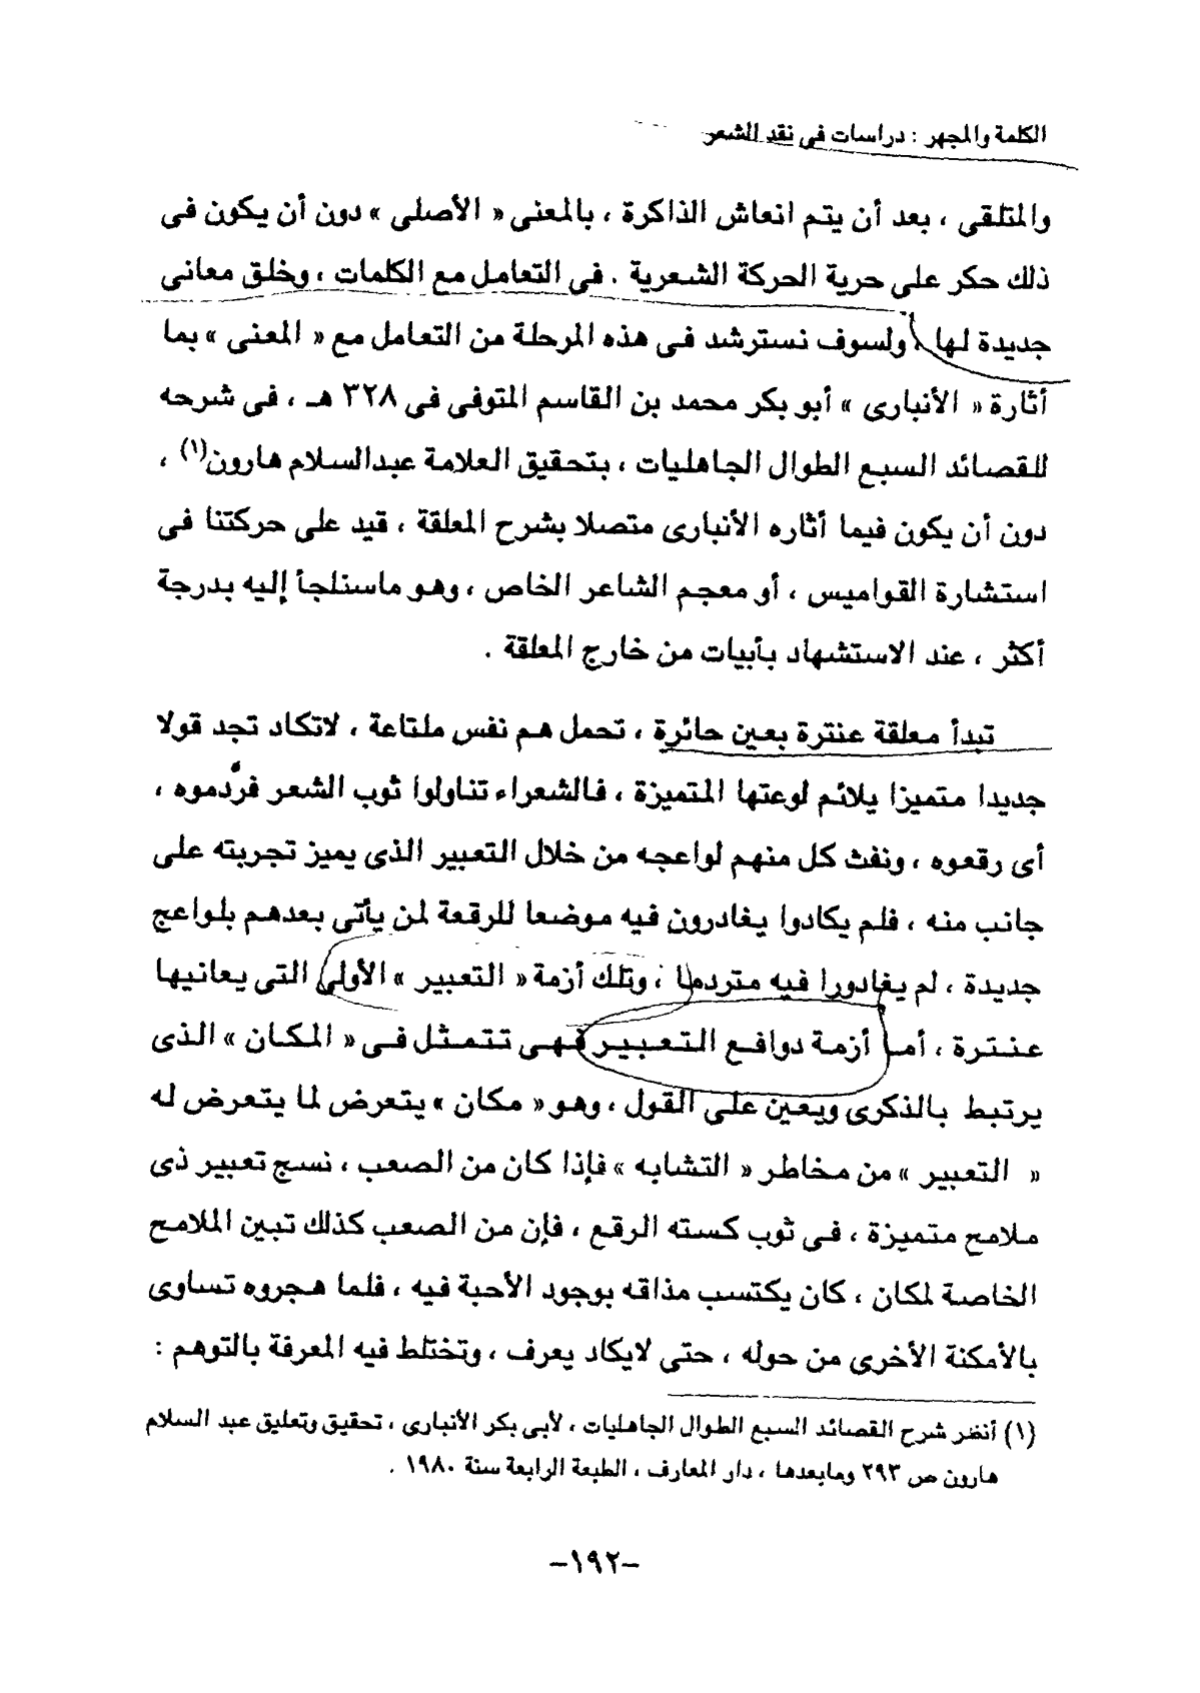 الكلمة والمجهر : دراسات فى نقد الشعر
والمتلقى ، بعد أن يتم انعاش الذاكرة ، بالمعنى « الأصلى » دون أن يكون فى
ذلك حكر على حرية الحركة الشعرية . فى التعامل مع الكلمات ، وخلق معانى
جديدة لها ، ولسوف نسترشد فى هذه المرحلة من التعامل مع « المعنى » بما
أثارة « الأنبارى » أبو بكر محمد بن القاسم المتوفى فى ٣٢٨ هـ ، فى شرحه
للقصائد السبع الطوال الجاهليات ، بتحقيق العلامة عبدالسلام هارون(١) ،
دون أن يكون فيما أثاره الأنبارى متصلا بشرح المعلقة ، قيد على حركتنا فى
استشارة القواميس ، أو معجم الشاعر الخاص ، وهو ماسنلجأ إليه بدرجة
أكثر ، عند الاستشهاد بأبيات من خارج المعلقة .
تبدأ معلقة عنترة بعين حائرة ، تحمل هم نفس ملتاعة ، لاتكاد تجد قولا
جديدا متميزا يلائم لوعتها المتميزة ، فالشعراء تناولوا ثوب الشعر فردَّموه ،
أى رقعوه ، ونفث كل منهم لواعجه من خلال التعبير الذى يميز تجربته على
جانب منه ، فلم يكادوا يغادرون فيه موضعا للرقعة لمن يأتى بعدهم بلواعج
جديدة ، لم يغادورا فيه متردما ، وتلك أزمة « التعبير » الأولى التى يعانيها
عنترة ، أما أزمة دوافع التعبير فهى تتمثل فى « المكان » الذى
يرتبط بالذكرى ويعين على القول ، وهو « مكان » يتعرض لما يتعرض له
« التعبير » من مخاطر « التشابه » فإذا كان من الصعب ، نسج تعبير ذى
ملامح متميزة ، فى ثوب كسته الرقع ، فإن من الصعب كذلك تبين الملامح
الخاصة لمكان ، كان يكتسب مذاقه بوجود الأحبة فيه ، فلما هجروه تساوى
بالأمكنة الأخرى من حوله ، حتى لايكاد يعرف ، وتختلط فيه المعرفة بالتوهم :
(١) أنظر شرح القصائد السبع الطوال الجاهليات ، لأبى بكر الأنبارى ، تحقيق وتعليق عبد السلام
هارون ص ٢٩٣ ومابعدها ، دار المعارف ، الطبعة الرابعة سنة ١٩٨٠ .
–١٩٢–